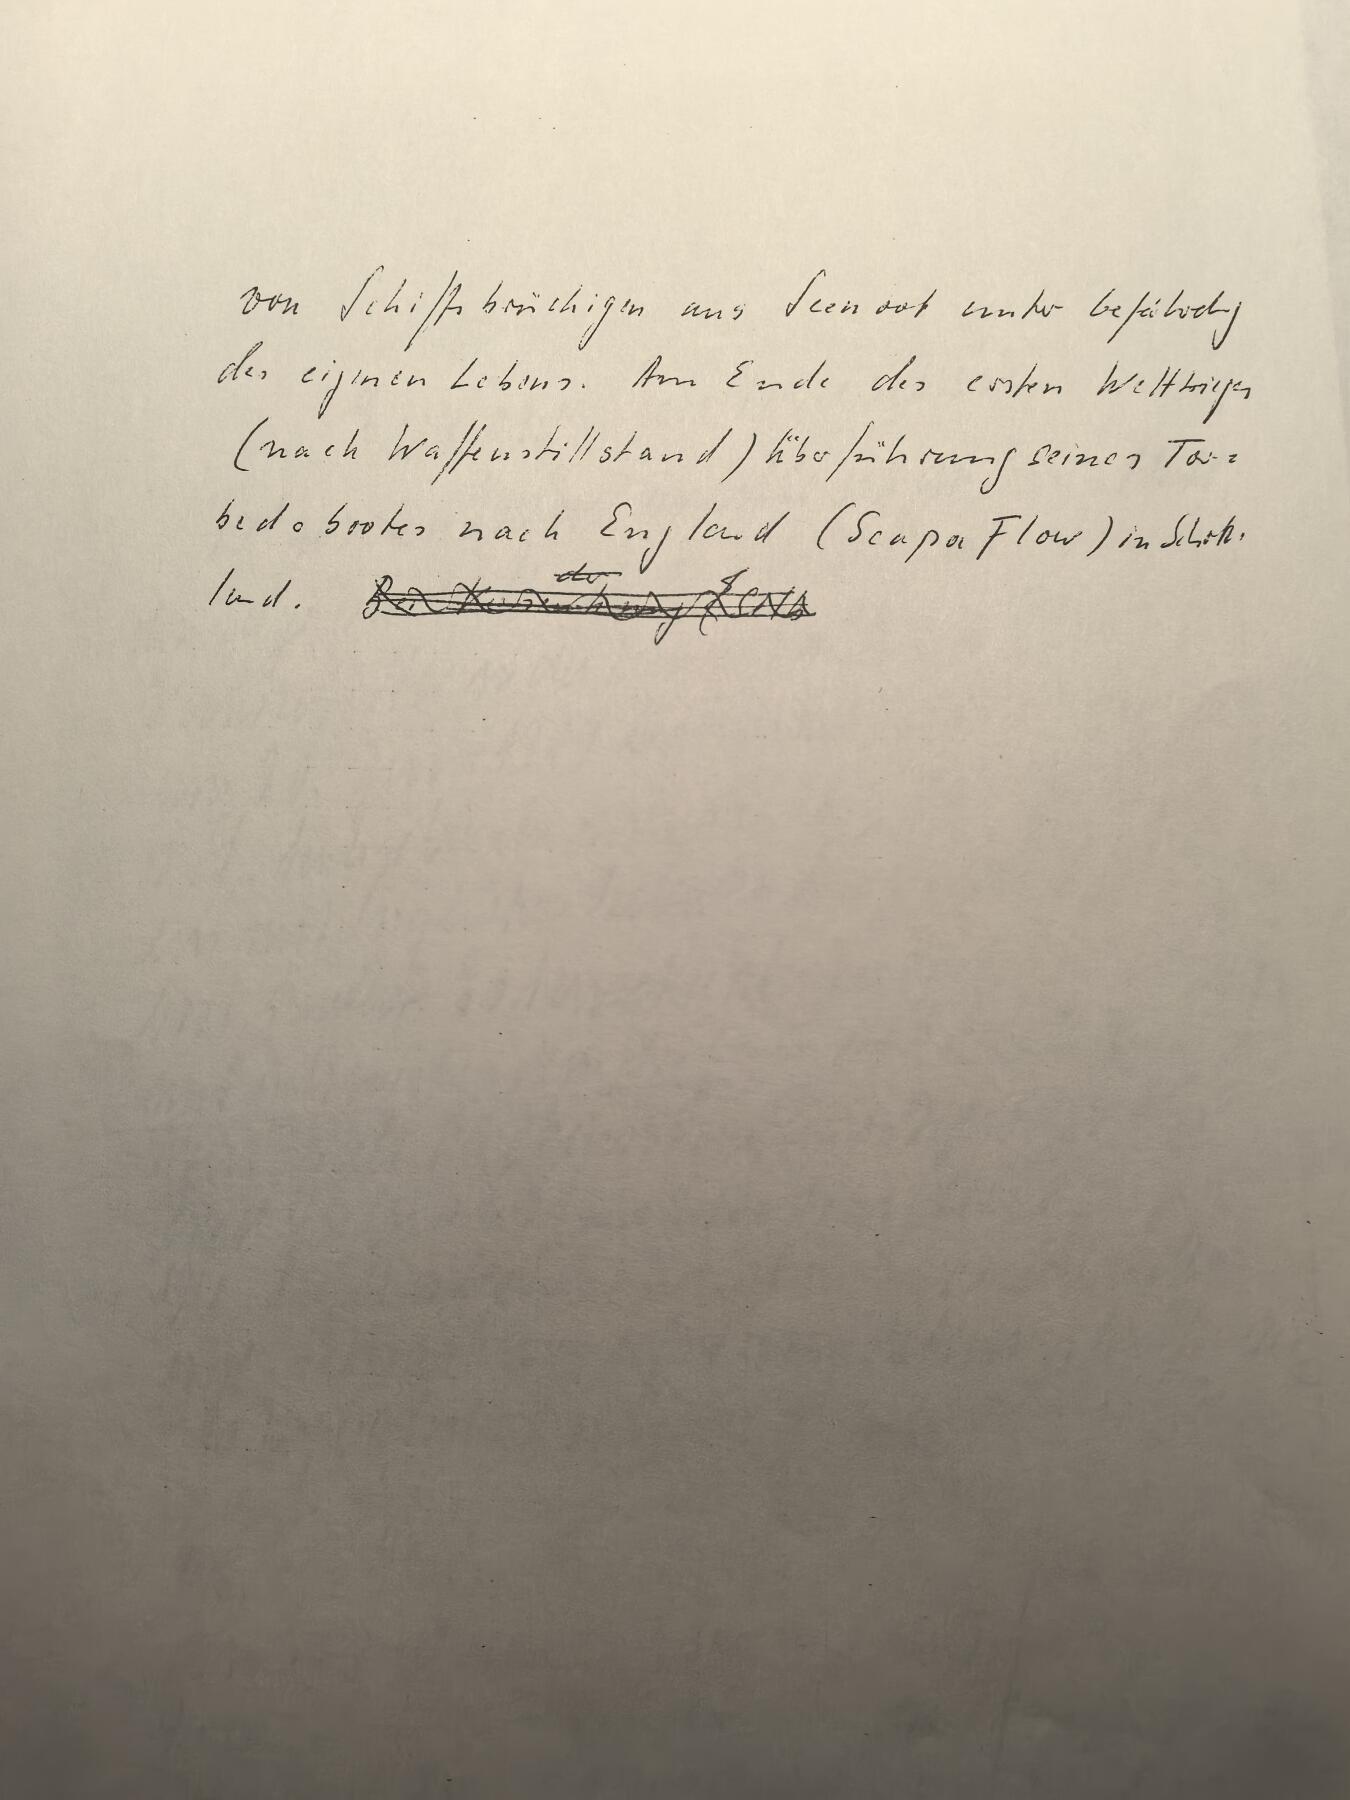 von Schiffbrüchigen aus Seenot unter befährdg
des eigenen Lebens. Am Ende des ersten Weltkrieges
(nach Waffenstillstand) Überführung seines Tor=
bedobootes nach England (Scapa Flow) in Schott-
land.